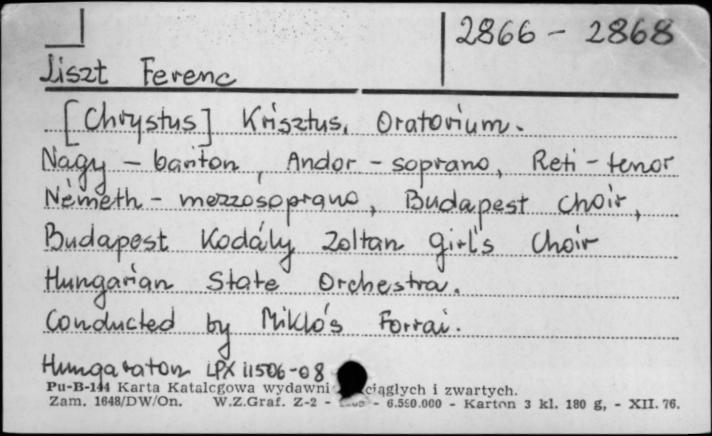 2866 - 2868
Liszt Ferenc
[Chrystus] Krisztus, Oratorium.
Nagy - bariton, Andor - soprano, Reti - tenor
Németh - mezzosoprano, Budapest choir,
Budapest Kodály Zoltan girl's Choir
Hungarian State Orchestra.
Conducted by Miklós Forrai.
Hungaraton LPX 11506-08
Pu-B-144 Karta Katalogowa wydawni ciągłych i zwartych.
Zam. 1648/DW/On. W.Z.Graf. Z-2 - - 6.590.000 - Karton 3 kl. 180 g, - XII. 76.